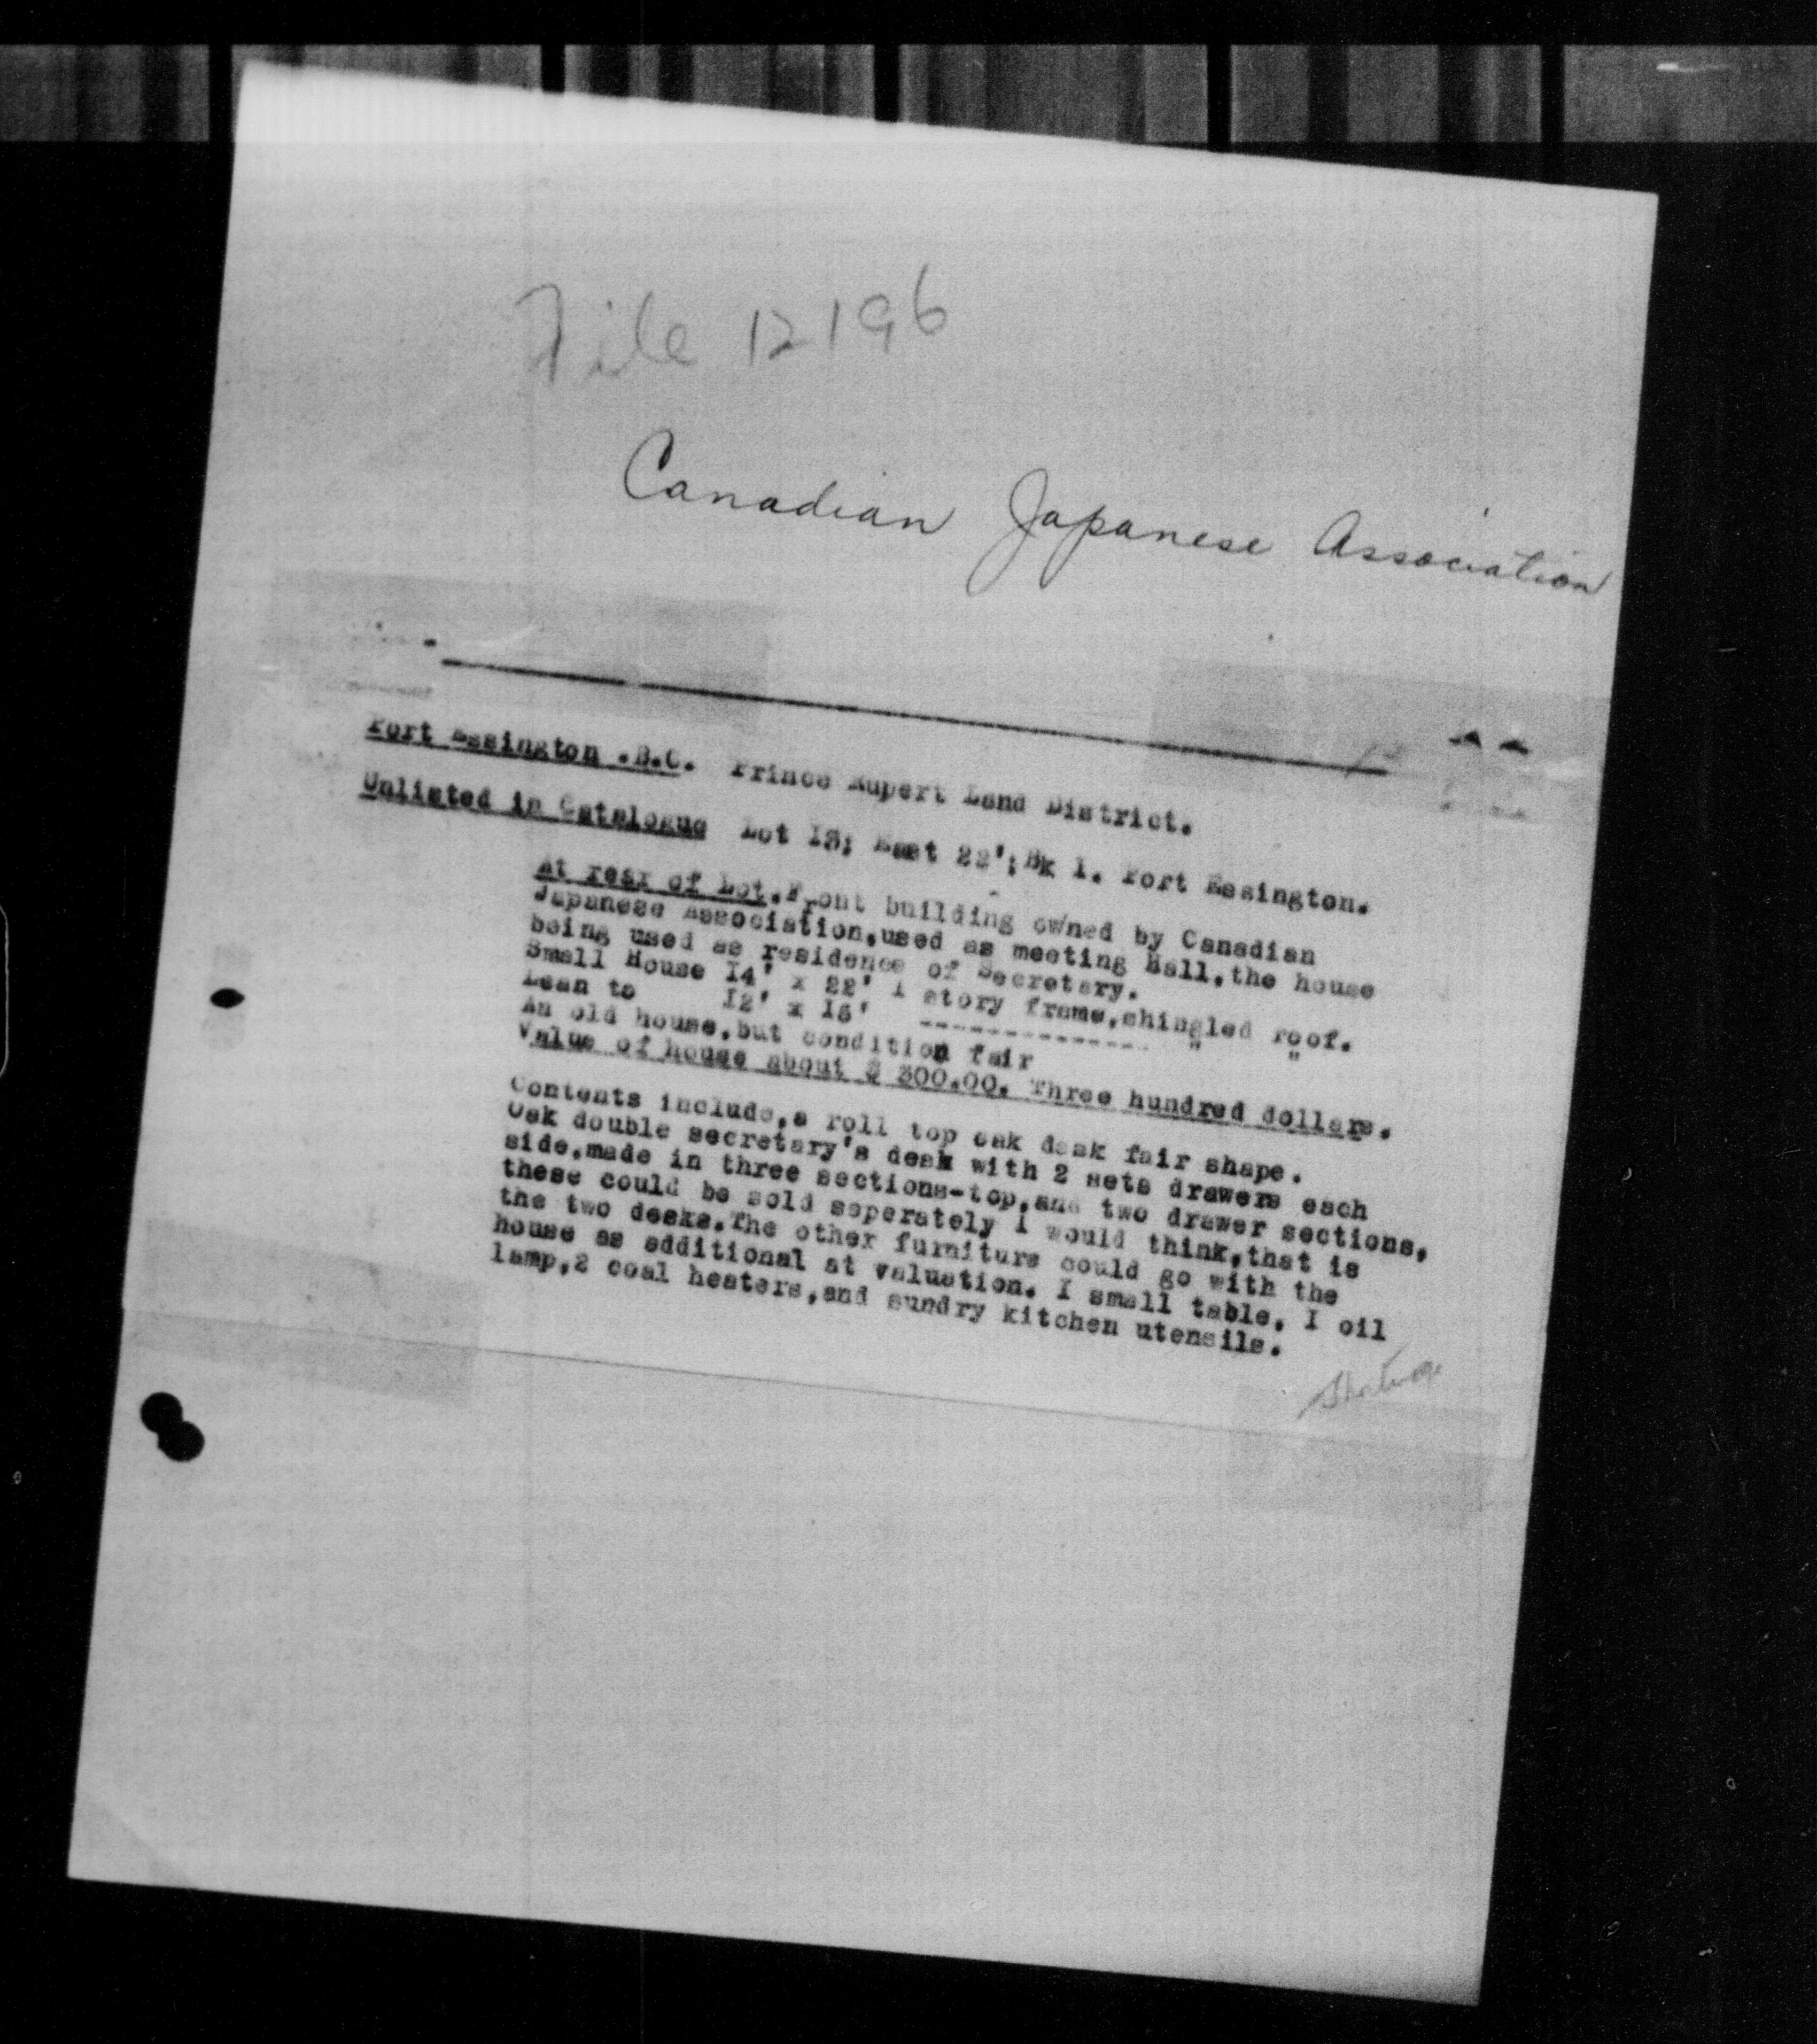 File 12196
Canadian Japanese Association
Port Essington .B.C. Prince Rupert Land District.
Unlisted in Catalogue Lot 18; East 22'; Bk 1. Port Essington.
At rear of Lot. Front building owned by Canadian
Japanese Association,used as meeting Hall,the house
being used as residence of Secretary.
Small House I4' x 22' 1 story frame,shingled roof.
Lean to I2' x I6' -------------- " "
An old house,but condition fair
Value of house about $ 300.00. Three hundred dollars.
Contents include,a roll top oak desk fair shape.
Oak double secretary's desk with 2 sets drawers each
side,made in three sections-top,and two drawer sections,
these could be sold seperately I would think,that is
the two desks.The other furniture could go with the
house as additional at valuation. I small table, I oil
lamp,2 coal heaters,and sundry kitchen utensils.